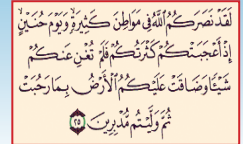 لَقَدْ نَصَرَكُمُ ٱللَّهُ فِى مَوَاطِنَ كَثِيرَةٍ وَيَوْمَ حُنَيْنٍ
إِذْ أَعْجَبَتْكُمْ كَثْرَتُكُمْ فَلَمْ تُغْنِ عَنكُمْ
شَيْـًٔا وَضَاقَتْ عَلَيْكُمُ ٱلْأَرْضُ بِمَا رَحُبَتْ
ثُمَّ وَلَّيْتُم مُّدْبِرِينَ ٢٥